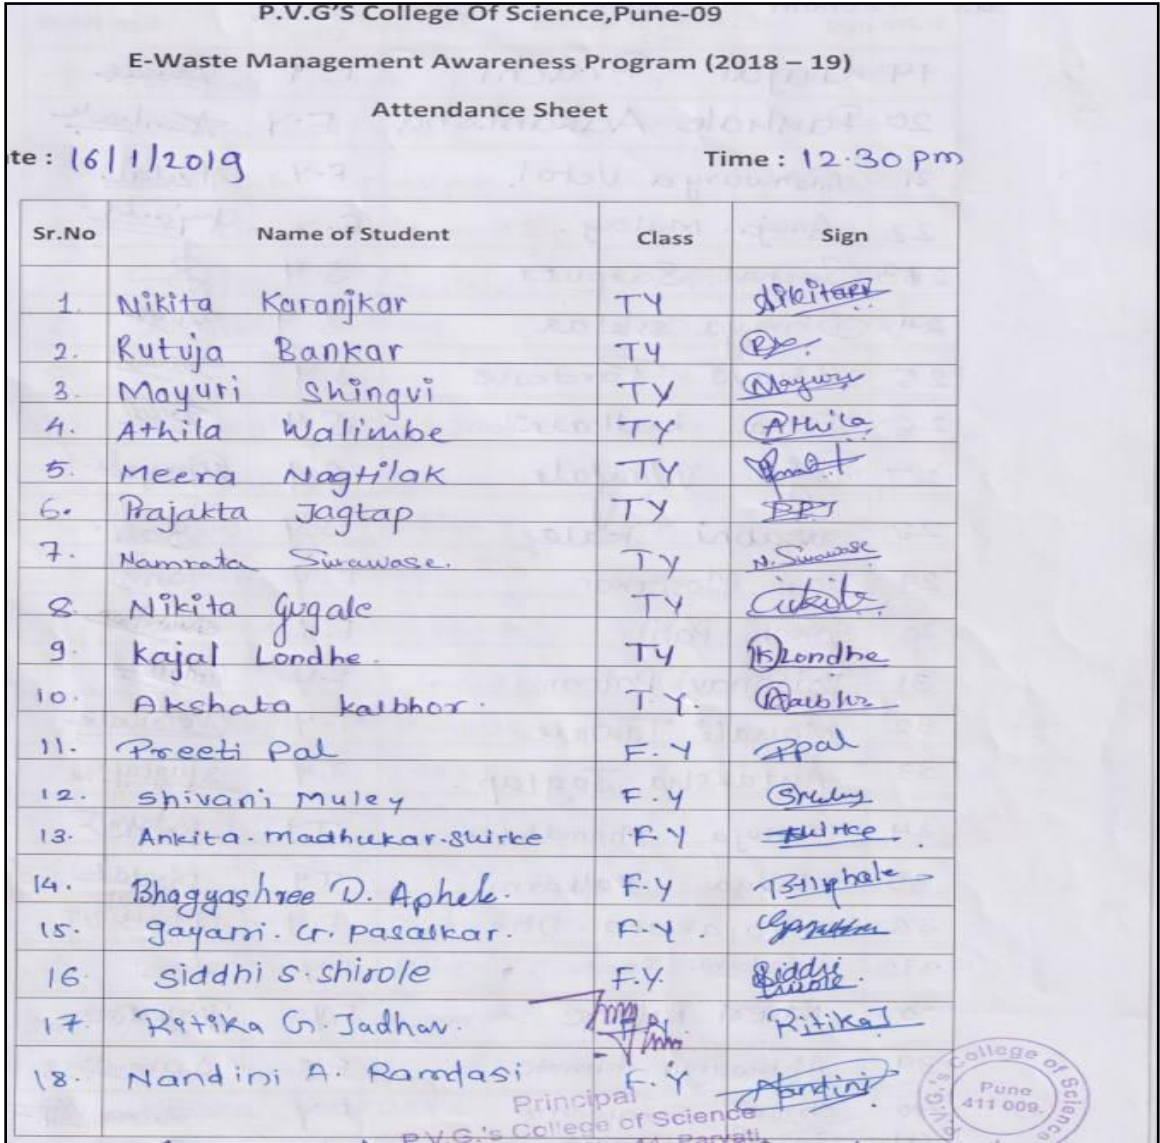 P.V.G'S College Of Science,Pune-09
E-Waste Management Awareness Program (2018 – 19)
Attendance Sheet
te : 16/1/2019 Time : 12.30 pm
Sr.No Name of Student Class Sign
1. Nikita Karanjkar TY
2. Rutuja Bankar TY
3. Mayuri Shingvi TY Mayuri
4. Athila Walimbe TY Athila
5. Meera Nagtilak TY
6. Prajakta Jagtap TY PPJ
7. Namrata Surawase. TY N. Surawase
8. Nikita Gugale TY
9. Kajal Londhe. TY KLondhe
10. Akshata kalbhor. T Y.
11. Preeti Pal F. Y PPal
12. Shivani Muley F. Y
13. Ankita. madhukar. Shirke F. Y Shirke
14. Bhagyashree D. Aphale. F. Y
15. gayatri. G. pasalkar. F. Y.
16. Siddhi S. Shirole F.Y. Siddhi Shirole.
17. Ritika G. Jadhav. RitikaJ
18. Nandini A. Ramdasi F. Y Nandini
Principal
P.V.G.'s College of Science
Parvati
P.V.G.'s College of Science
Pune
411 009.